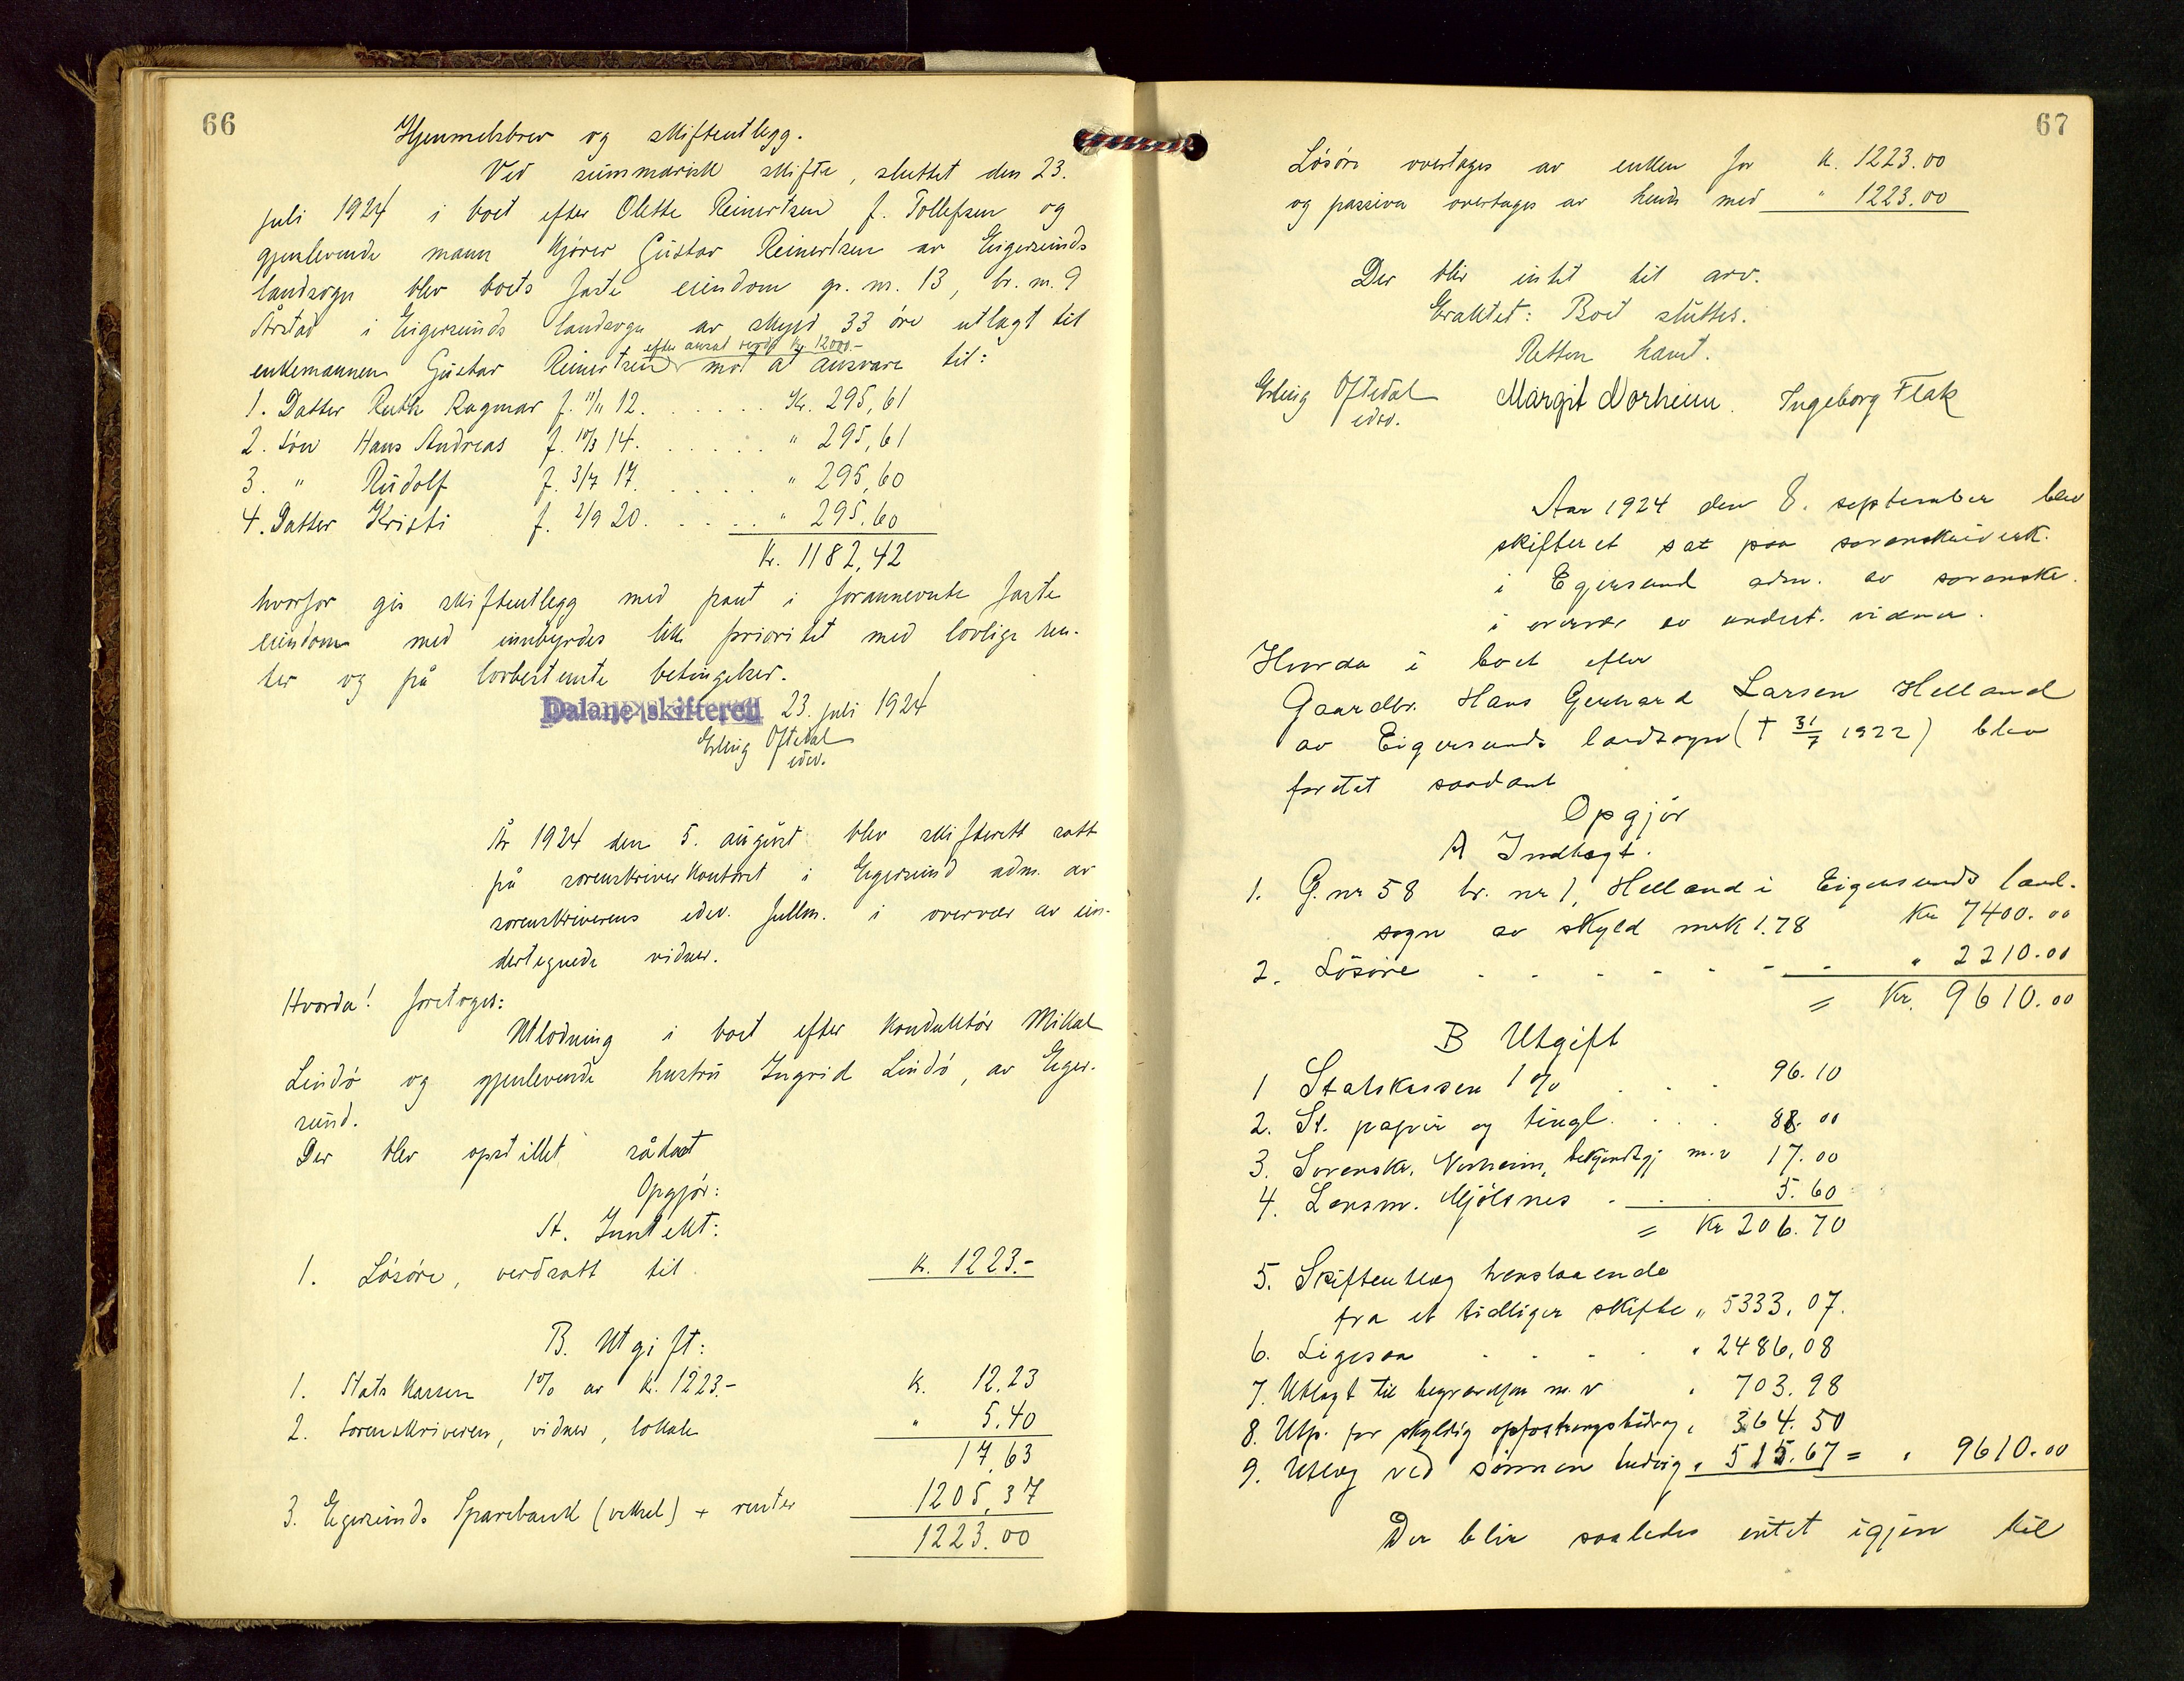 66
Hjemmelsbrev og skifteutlegg.
Ved summarisk skifte, sluttet den 23.
juli 1924 i boet efter Olette Reinertsen f. Tollefsen og
gjenlevende mann kjører Gustav Reinertsen av Eigersunds
landsogn blev boets faste eiendom gr. nr. 13, br. nr. 9
Årstad i Eigersunds landsogn av skyld 33 öre utlagt til
efter ansat verdi kr 12000.-
enkemannen Gustav Reinertsen mot at ansvare til:
1. Datter Ruth Ragmar f. 11/11 12. . . . . . . Kr. 295,61
2. Sön Hans Andreas f. 10/3 14. . . . . . " 295,61
3. " Rudolf f. 3/7 17. . . . . " 295,60
4. Datter Kristi f. 2/9 20. . . . . . " 295.60
Kr. 1182,42
hvorfor gis skifteutlegg med pant i forannevnte faste
eiendom med innbyrdes lik prioritet med lovlige ren-
ter og på lovbestemte betingelser.
Dalane skifterett 23. juli 1924
Erling Oftedal
edsv.
År 1924 den 5. august blev skifterett satt
på sorenskriverkontoret i Egersund adm. av
sorenskriverens edsv. fullm. i overvær av un-
dertegnede vidner.
Hvorda! foretoges:
Utlodning i boet efter konduktör Mikal
Lindö og gjenlevende hustru Ingrid Lindö, av Eger-
sund.
Der blev opstillet sådant
Opgjör:
A. Inntekt:
1. Lösöre, verdsatt til k. 1223.-
B. Utgift:
1. Statskassen 1% av k. 1223.- k. 12,23
2. Sorenskriveren, vidner, lokale " 5.40
17,63
3. Egersunds Sparebank (veksel) + renter 1205,37
1223.00
67
Lösöre overtages av enken for k. 1223.00
og passiva overtages av hende med " 1223.00
Der blir intet til arv.
Eraktet: Boet sluttes.
Retten hævet.
Erling Oftedal Margit Norheim. Ingeborg Flak
edsv.
Aar 1924 den 8. september blev
skifteret sat paa sorenskriverk.
i Egersund adm. av sorenskr.
i overvær av undert. vidner.
Hvorda i boet efter
Gaardbr. Hans Gerhard Larsen Helland
av Eigersunds landsogn († 31/7 1922) blev
foretat saadant
Opgjör
A Indtægt.
1. G. nr 58 br. nr 1, Helland i Eigersunds land-
sogn av skyld mrk 1.78 Kr 7400.00
2. Lösöre - - - - - - " 2210.00
= Kr. 9610.00
B Utgift
1 Statskassen 1% . . . 96.10
2. St. papir og tingl. . . . 88.00
3. Sorenskr. Norheim, bekjendtgj m.v 17.00
4. Lensm. Mjölsnes . . . 5.60
= Kr 206.70
5. Skifteutlæg henstaaende
fra et tidliger skifte " 5333,07.
6. Ligesaa - - - - " 2486,08
7. Utlagt til begravelsen m.v " 703.98
8. Utp. for skyldig opfostringsbidrag " 364.50
9. Utlæg ved sønnen Ludvig " 515.67 = " 9610.00
Der blir saaledes intet igjen til